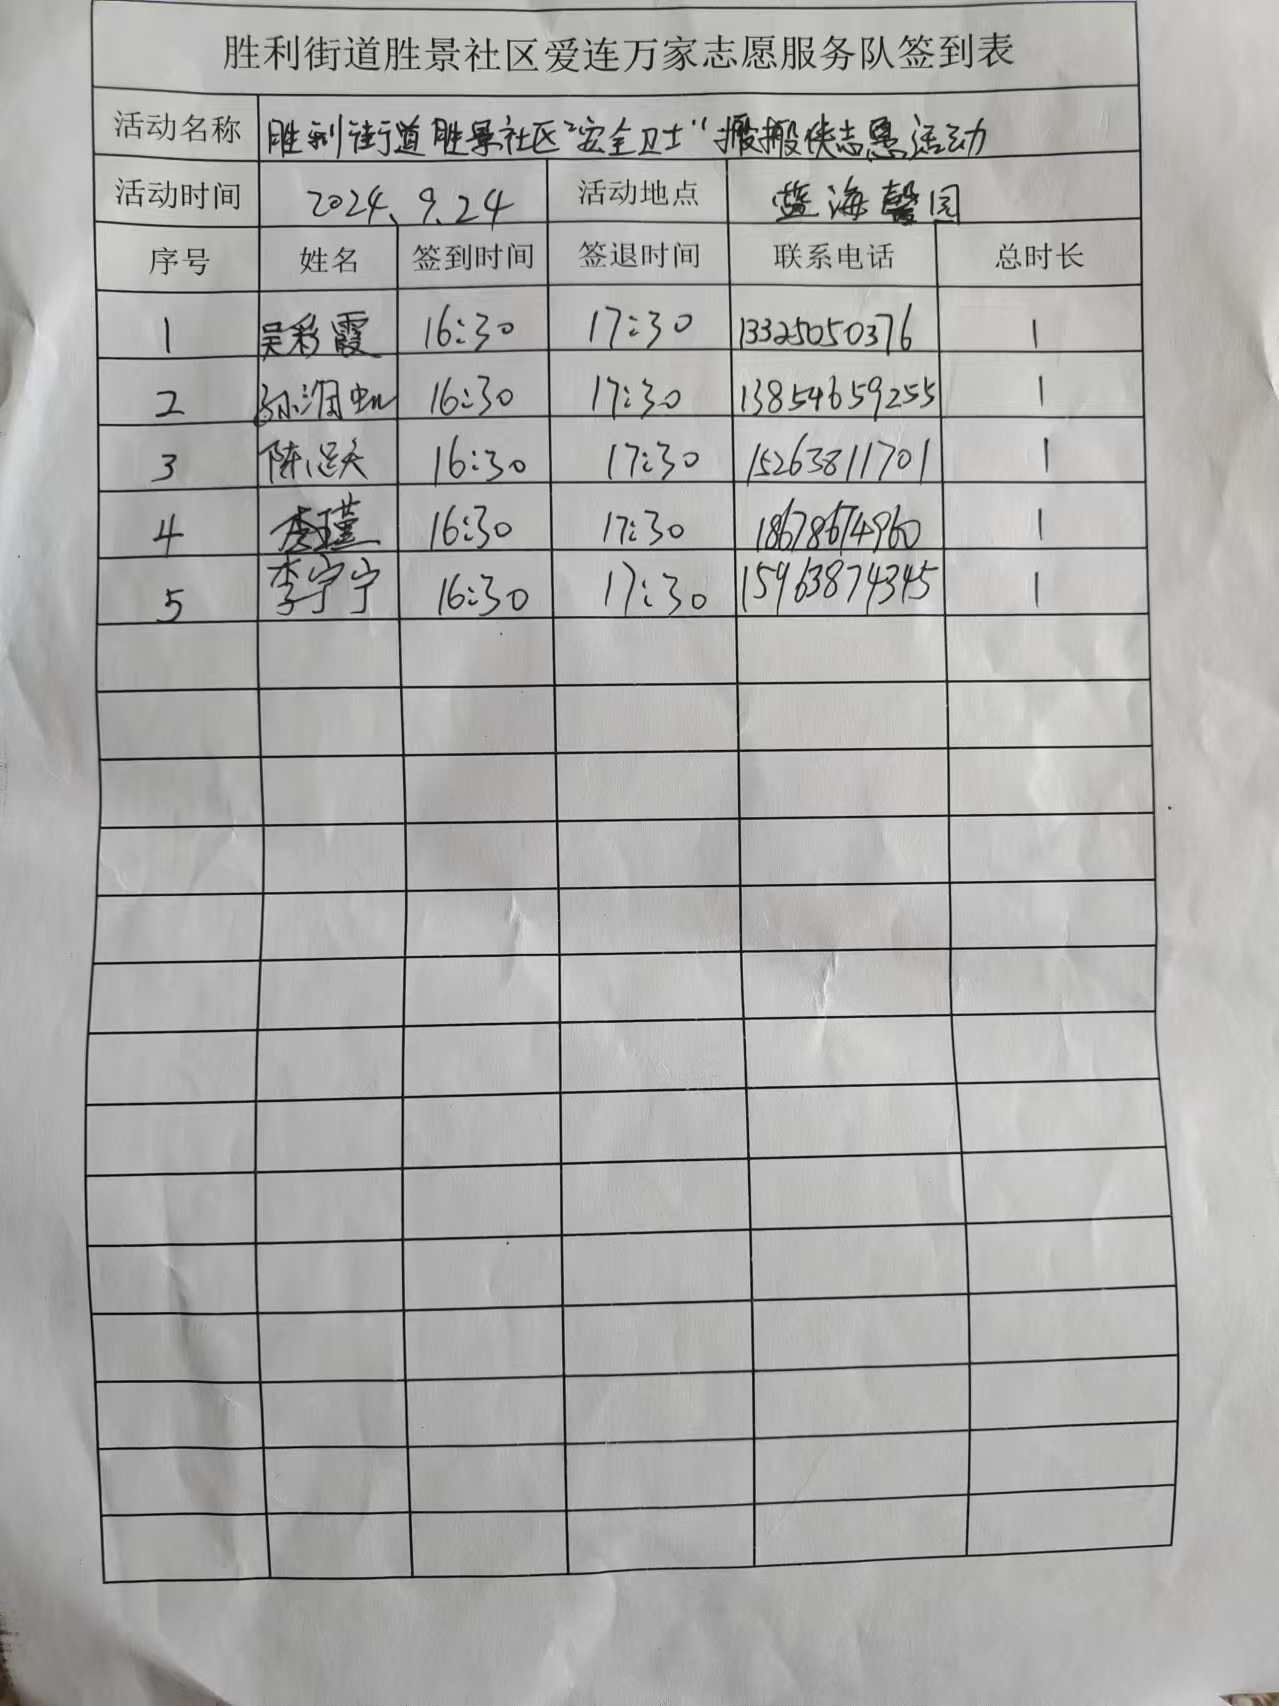 胜利街道胜景社区爱连万家志愿服务队签到表
活动名称 胜利街道胜景社区"安全卫士"搬搬侠志愿活动
活动时间 2024、9.24 活动地点 蓝海馨园
序号 姓名 签到时间 签退时间 联系电话 总时长
1 吴彩霞 16:30 17:30 13325050376 1
2 孙润虹 16:30 17:30 13854659255 1
3 陈 16:30 17:30 15263811701 1
4 李瑾 16:30 17:30 18678674960 1
5 李宁宁 16:30 17:30 15963874345 1